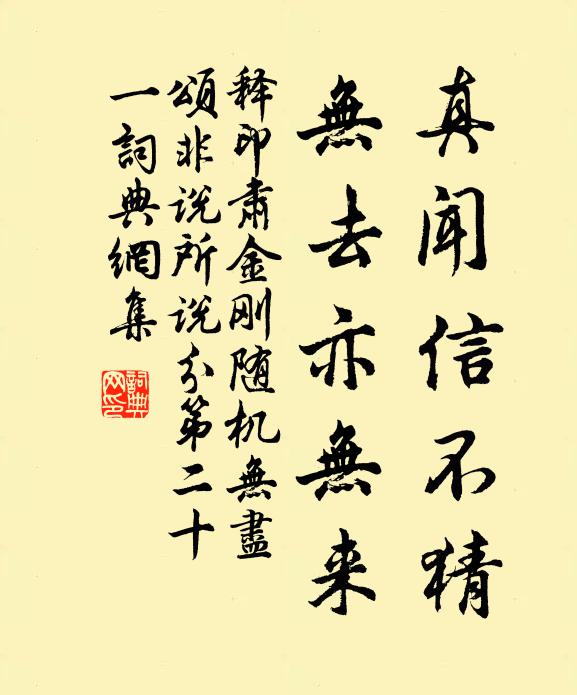 真闻信不猜
無去亦無来
释印肃金刚随机無盡
頌非说所说分第二十
一詞典網集
詞典
网印